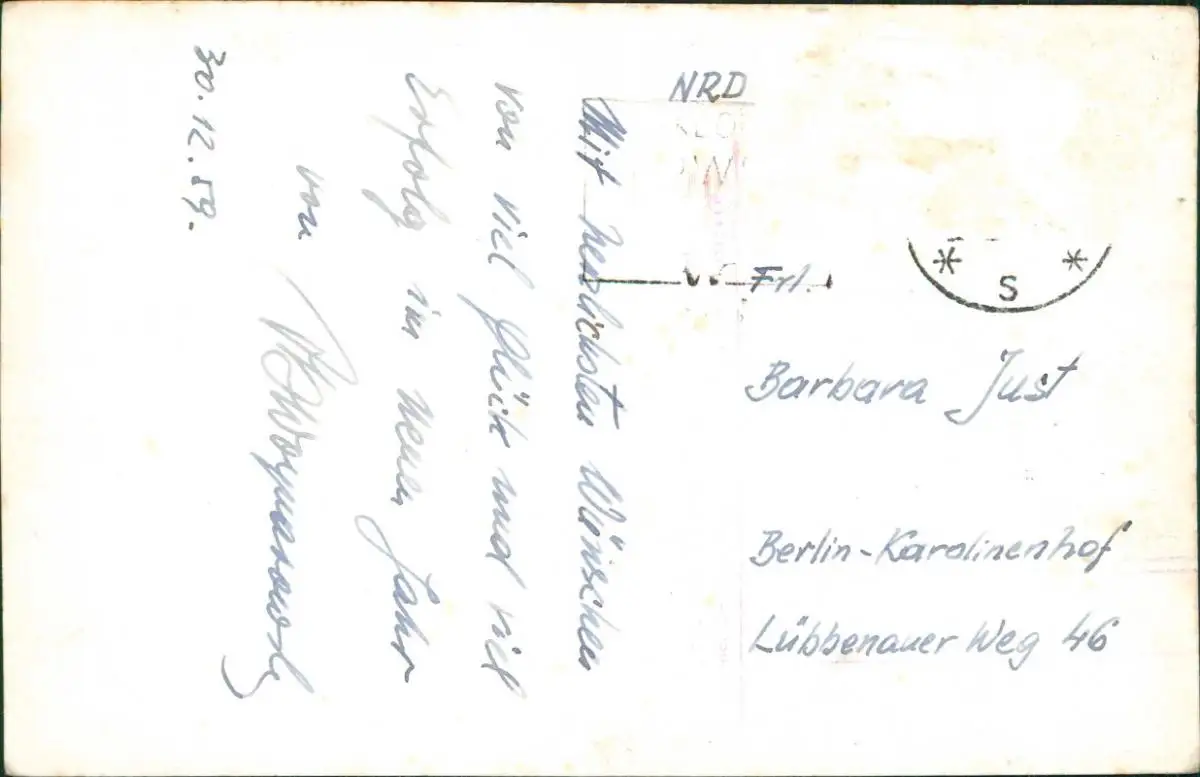 Mit herzlichsten Wünschen
von viel Glück und viel
Erfolg im neuen Jahr
von
30.12.59.
NRD
S
Frl.
Barbara Just
Berlin-Karolinenhof
Lübbenauer Weg 46